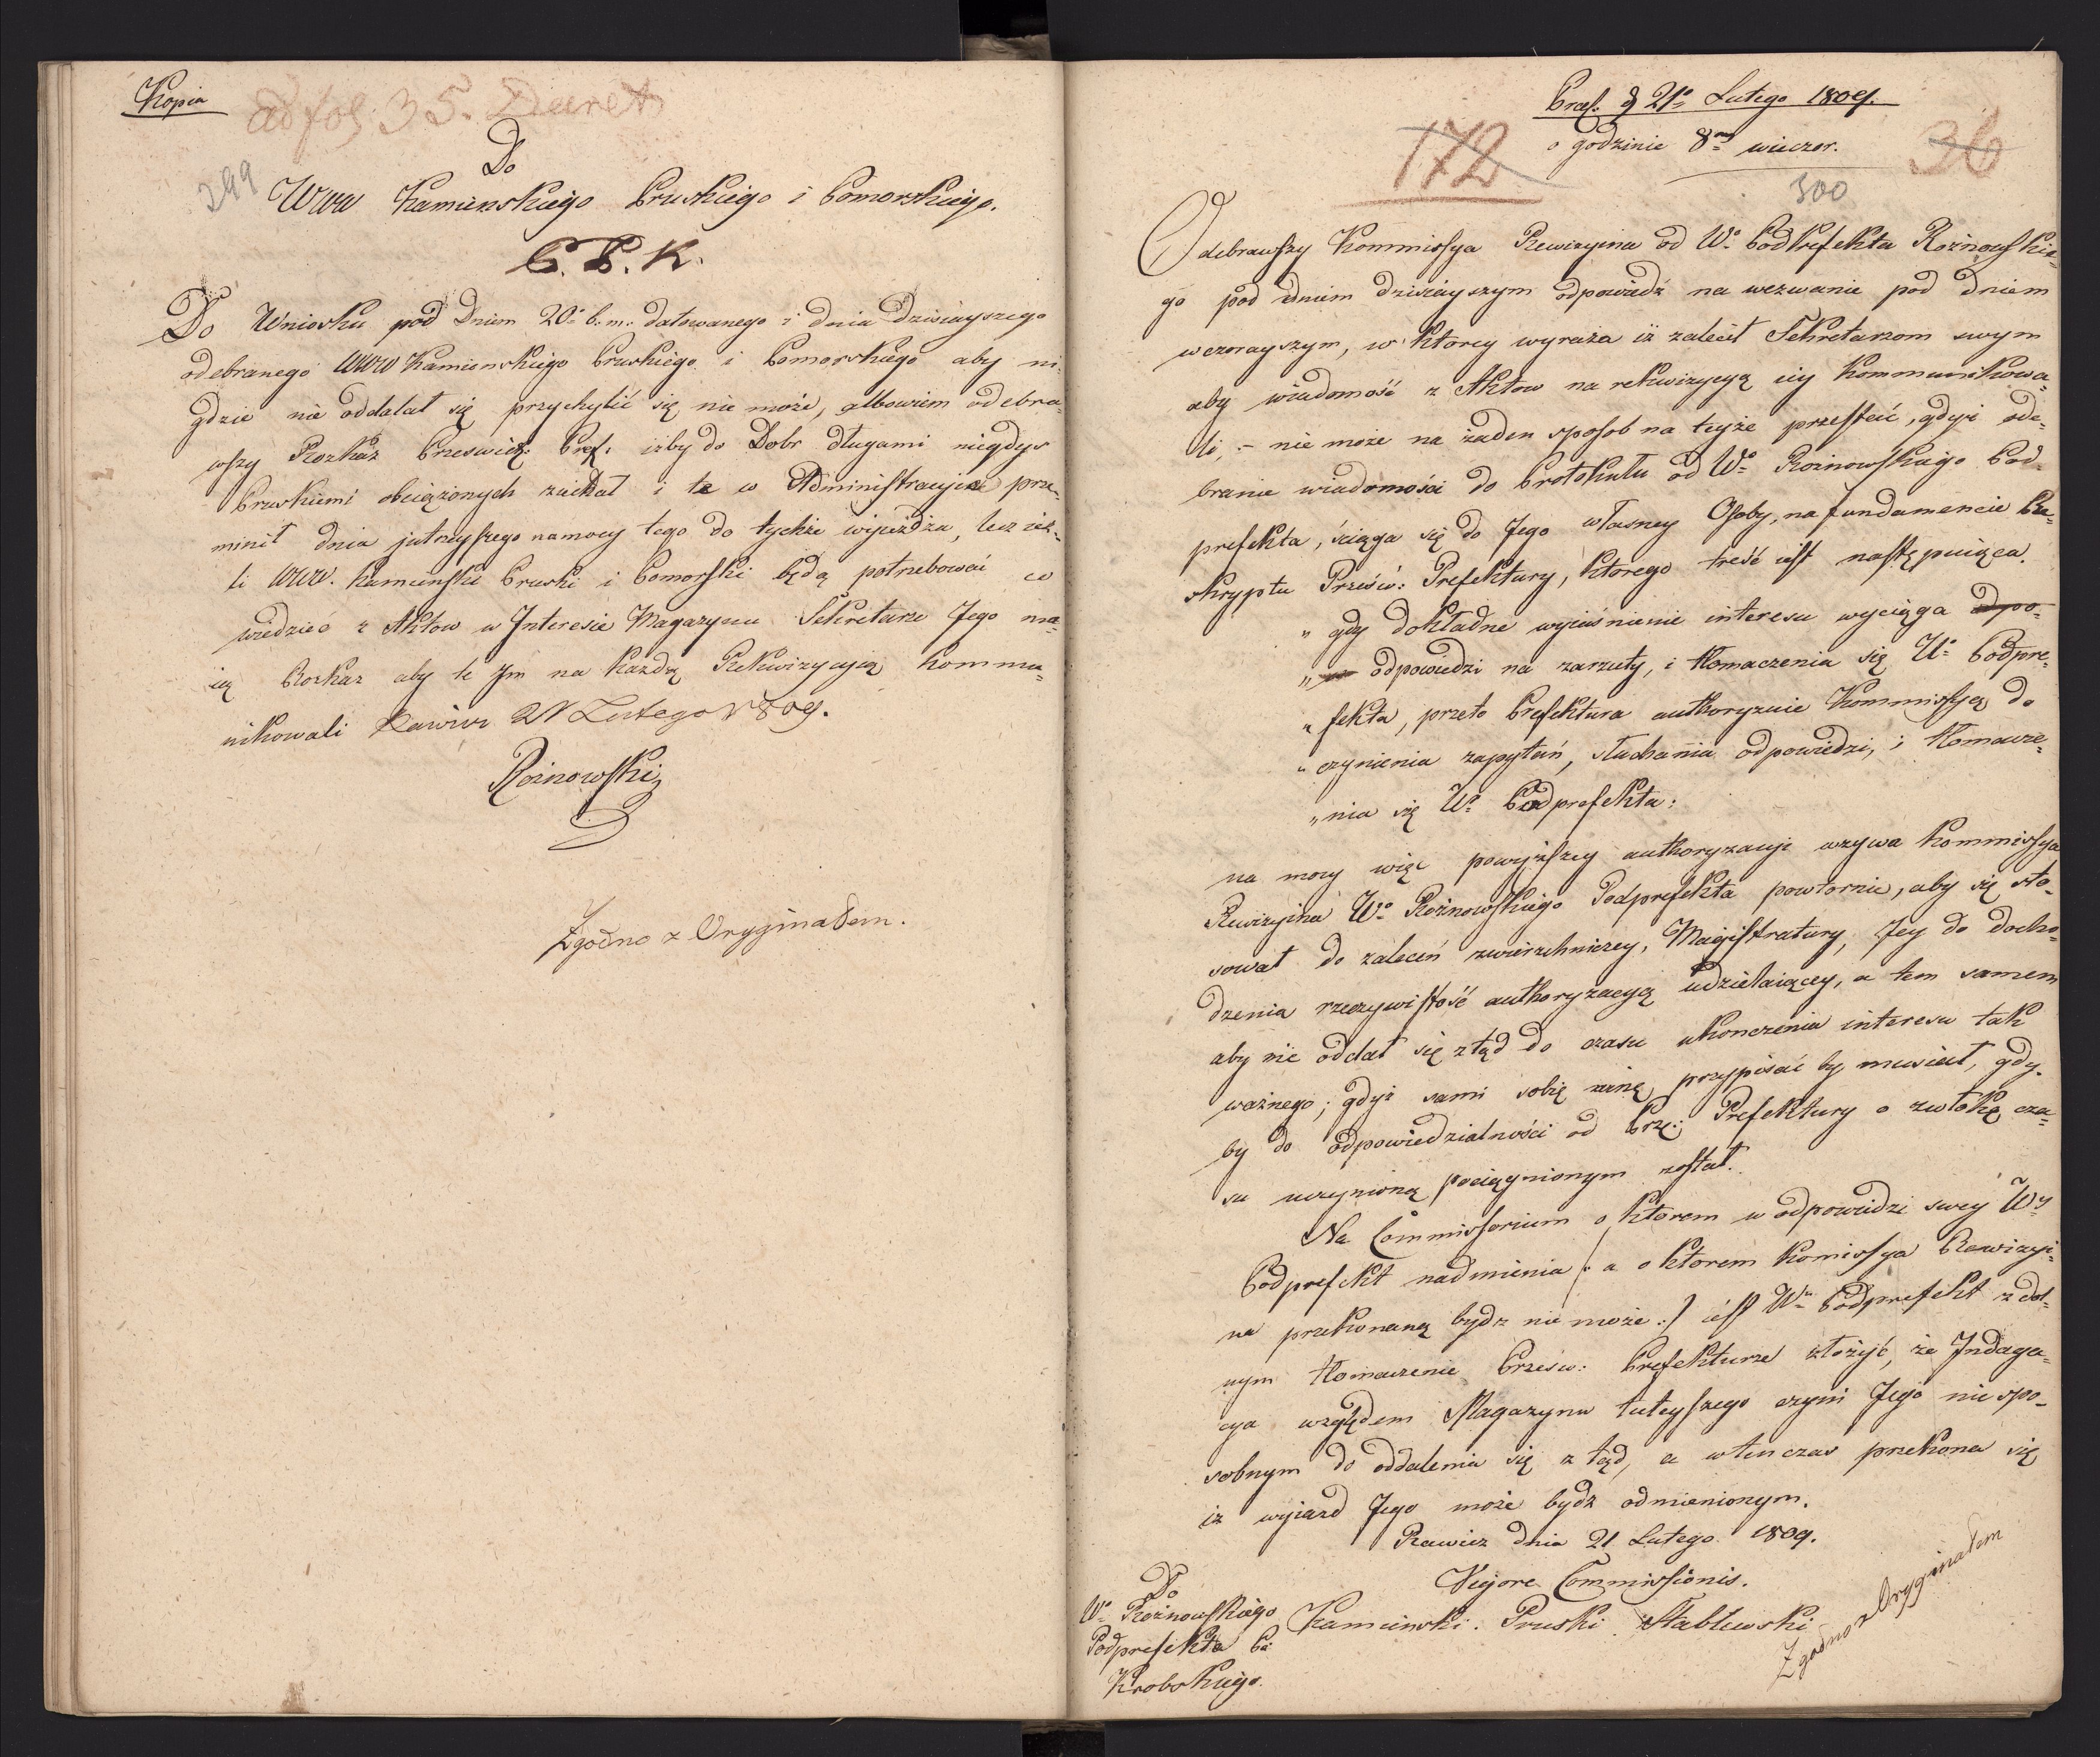 Kopia
ad fol: 35. Duret
299
Do
WWW Kamienskiego Pruskiego i Pomorskiego.
P. P. K.
Do Wniosku pod Dniem 20. b. m. datowanego i dnia Dzisiayszego
odebranego WWW Kamienskiego Pruskiego i Pomorskiego aby ni=
gdzie nie oddalał się przychylić się nie może, albowiem odebra=
wszy Rozkaz Prześwięt: Pref: izby do Dobr długami niegdys
Pruskiemi obciążonych ziechał i te w Administracyie prze=
minił dnia jutrzyszego na mocy tego do tychże wijeżdża, lecz ież=
li WWW. Kamieński Pruski i Pomorski będą potrzebować co
wiedzieć z Aktow w Interesie Magazynu Sekretarze Jego ma=
ią Rozkaz aby te Im na każdą Rekwizycyią kommu=
nikowali Rawicz 21 Lutego 1809.
Rożnowski
Zgodno z Oryginałem.
Præs. d 21º Lutego 1809.
o godzinie 8mey wieczor.
172
36
300
Odebrawszy Kommissya Rewizyina od Wº Podprefekta Rożnowskie=
go pod dniem dzisieyszym odpowiedź na wezwanie pod dniem
wczorayszym, w ktorey wyraża iż zalecił Sekretarzom swym
aby wiadomość z Aktow na rekwizycyą iey kommunikowa=
li, – nie może na żaden sposob na teyże przestać, gdyż ode=
branie wiadomości do Protokułu od Wº Rożnowskiego Pod=
prefekta, ściąga się do Jego własney Osoby, na fundamencie Re=
skryptu Prześw: Prefektury, ktorego treść iest następuiąca.
" gdy dokładne wyiaśnienie interesu wyciąga odpo=
" odpowiedzi na zarzuty, i tłomaczenia się Wº Podpre=
" fekta, przeto Prefektura authoryzuie Kommissyą do
" czynienia zapytań, słuchania odpowiedzi, i tłomacze=
" nia się Wº Podprefekta:
na mocy więc powyższey authoryzacyi wzywa Kommissya
Rewizyina Wº Rożnowskiego Podprefekta powtornie, aby się sto=
sował do zaleceń zwierzchniczey, Magistratury, Jey do docho=
dzenia rzeczywistość authoryzacyą udzielaiącey, a tem samem
aby nie oddał się ztąd do czasu ukonczenia interesu tak
ważnego; gdyż sami sobię winę przypisać by musiał, gdy=
by do odpowiedzialności od Prz: Prefektury o zwłokę cza=
su uczynioną pociągnionym został.
Na Commissorium o ktorem w odpowiedzi swey Wy
Podprefekt nadmienia /: a o ktorem Komissya Rewizyi=
na przekonaną bydz nie może :/ iest Wn Podprefekt zdol=
nym tłomaczenie Prześw: Prefekturze złożyć, że Indaga=
cya względem Magazynu tuteyszego czyni Jego niespo=
sobnym do oddalenia się z tąd, a wtenczas przekona się
iż wyiazd Jego może bydź odmienionym.
Rawicz dnia 21 Lutego 1809.
Vigore Commissionis.
Kamieński. Pruski. Stablewski
Do
Wº Rożnowskiego
Podprefekta Pu
Krobskiego.
Zgodno z Oryginałem